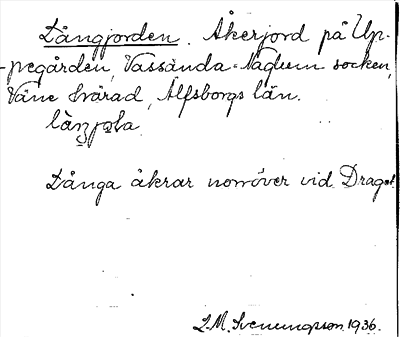 Långjorden. Åkerjord på Up-
pegården, Vassända-Naglum socken,
Väne härad, Älfsborgs län.
Långa åkrar norröver vid Draget.
L.M. Svenungsson 1936.